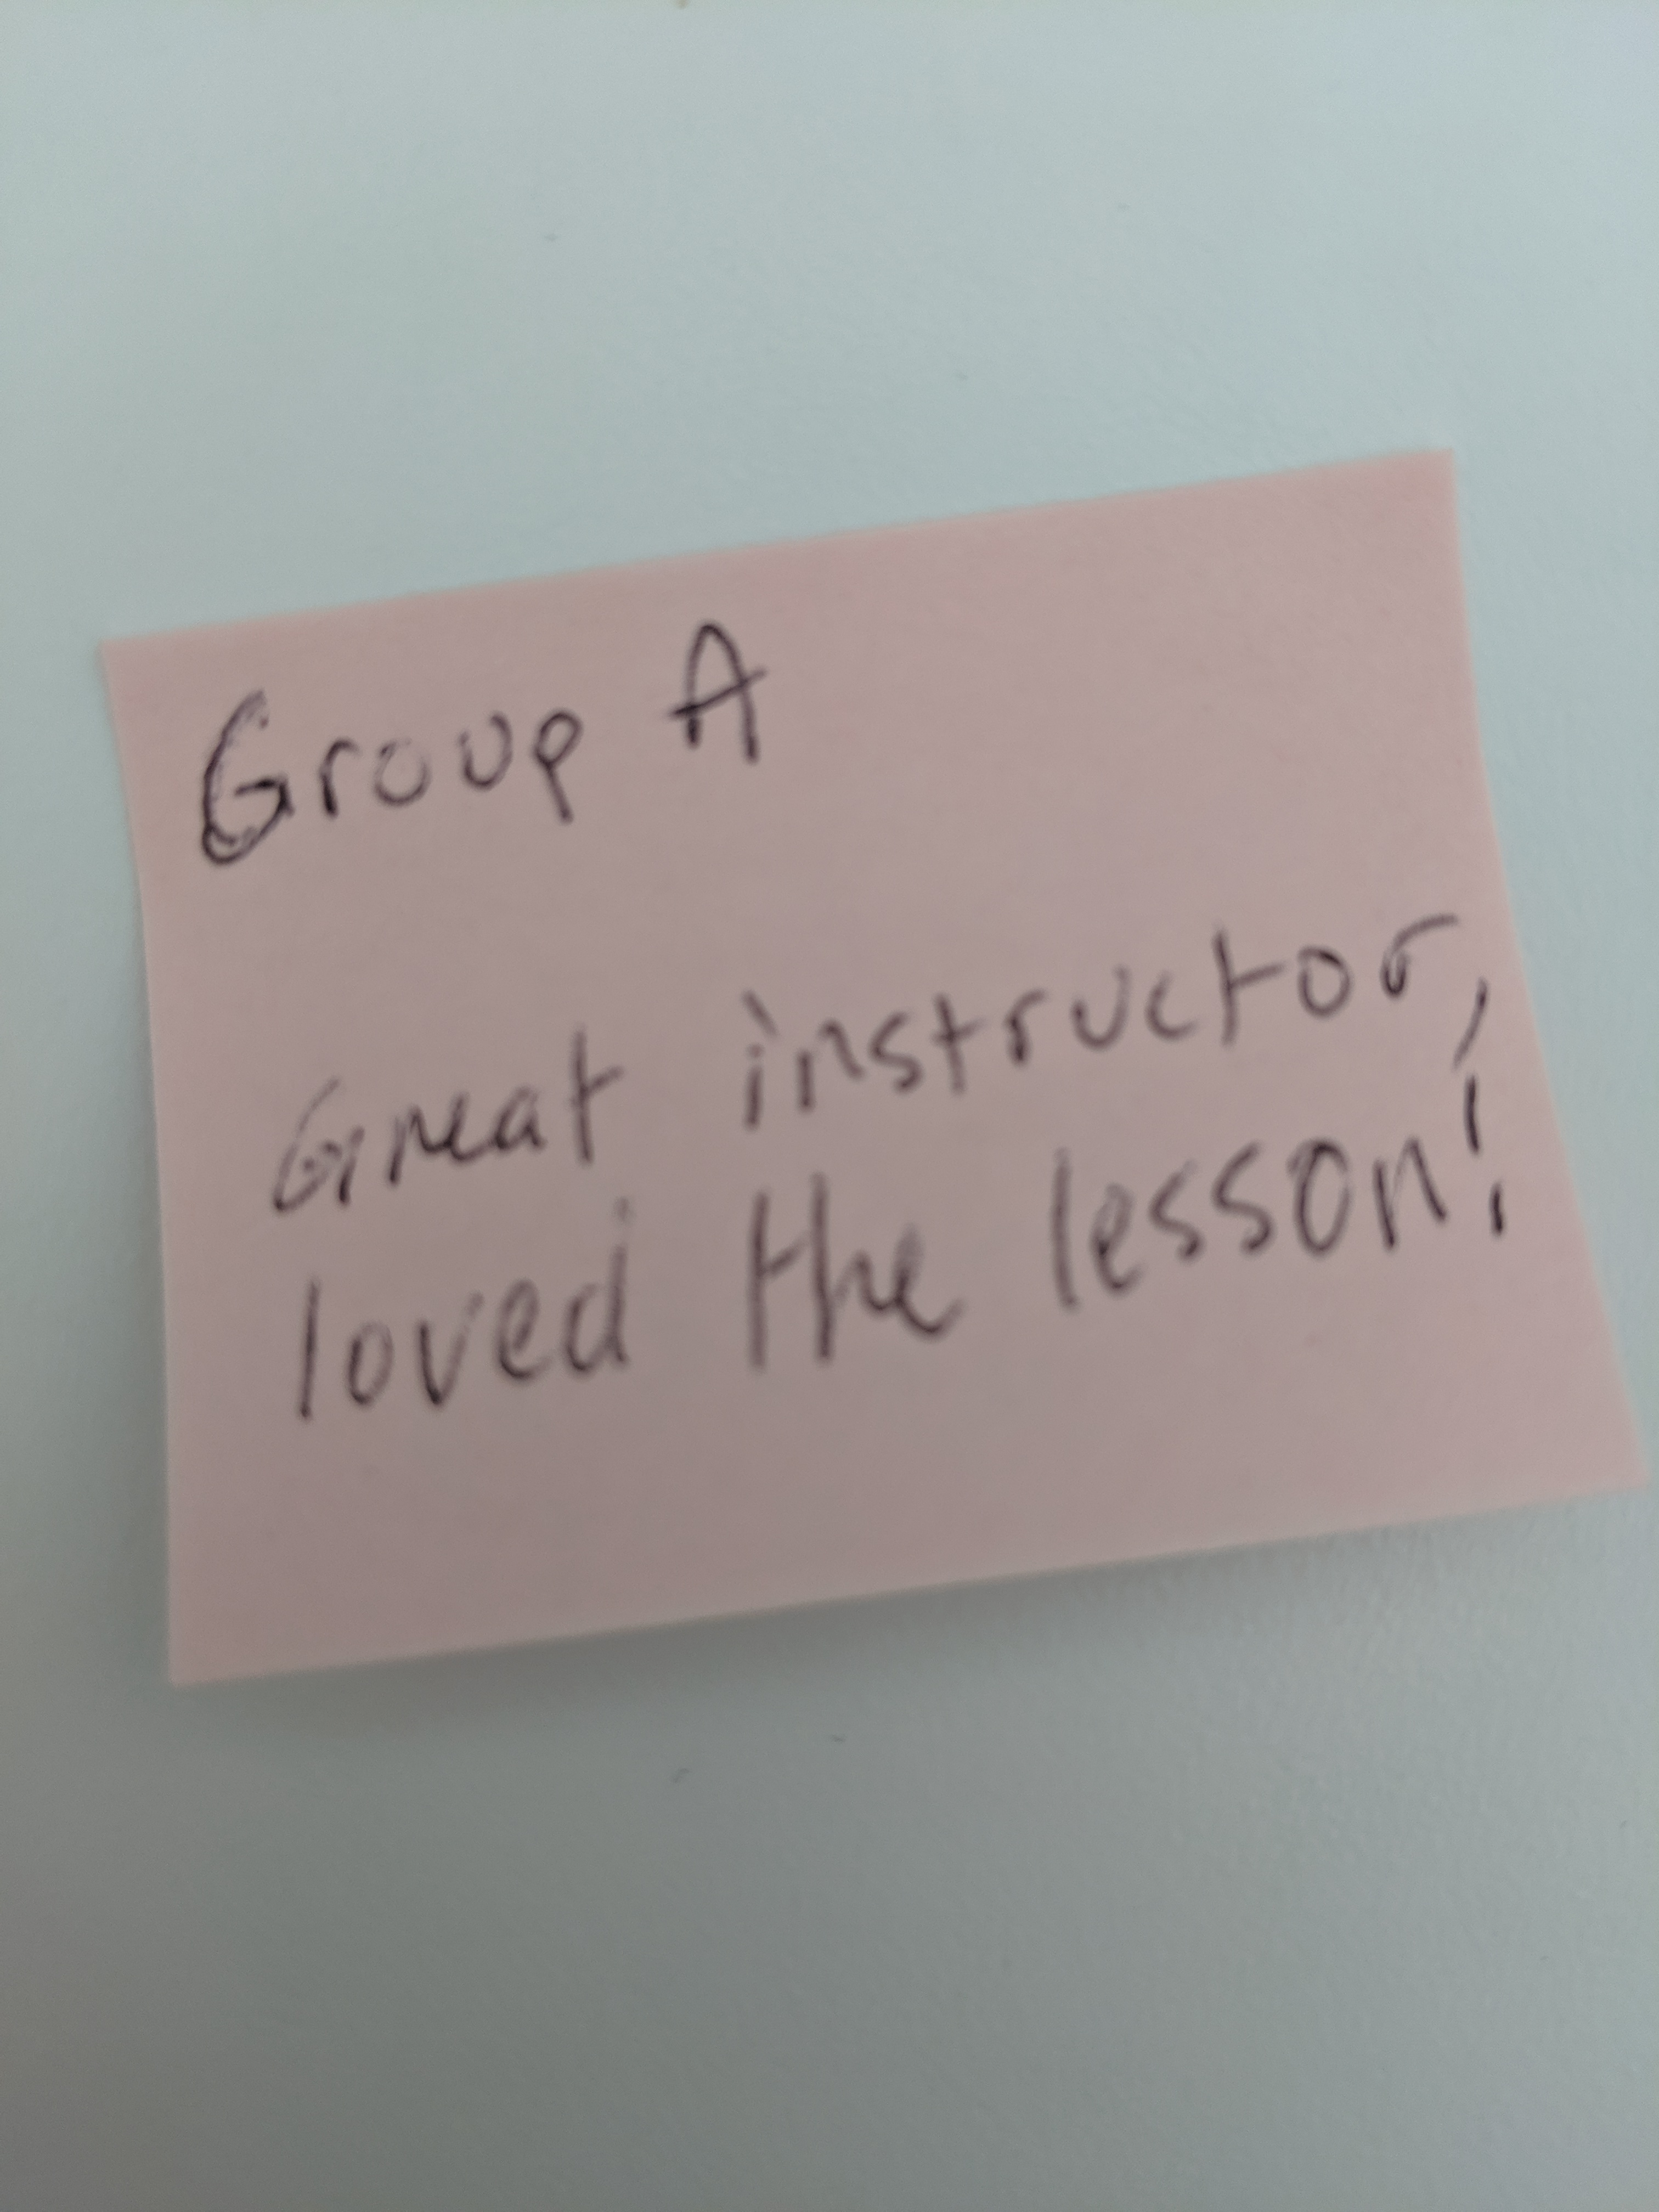 Group A
Great instructor,
loved the lesson!